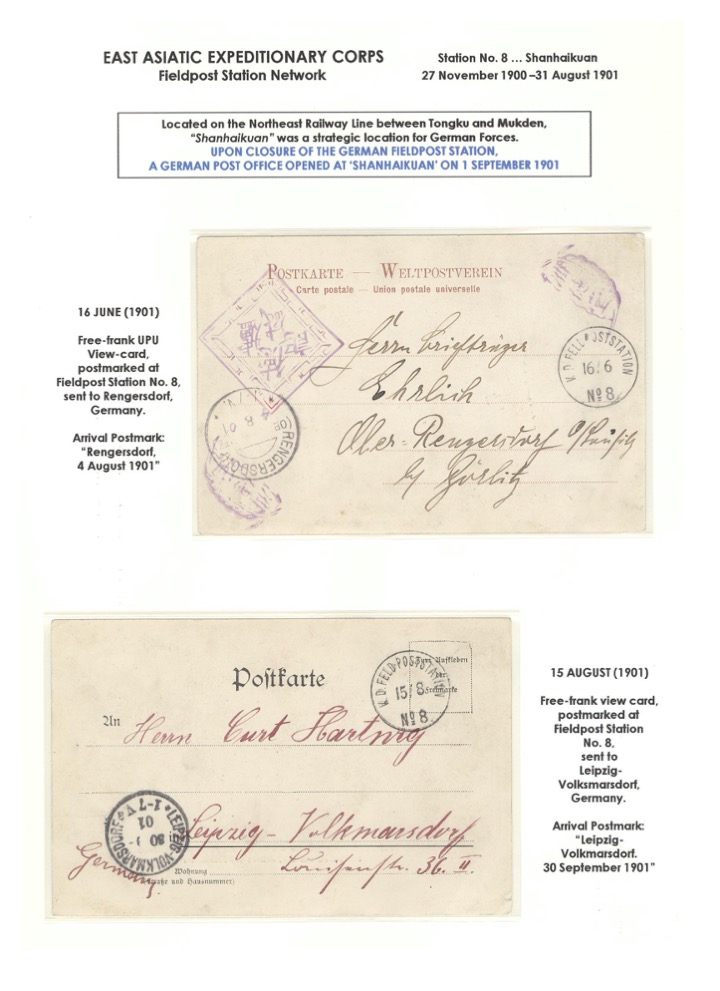 EAST ASIATIC EXPEDITIONARY CORPS
Fieldpost Station Network
Station No. 8 ... Shanhaikuan
27 November 1900–31 August 1901
Located on the Northeast Railway Line between Tongku and Mukden,
"Shanhaikuan" was a strategic location for German Forces.
UPON CLOSURE OF THE GERMAN FIELDPOST STATION,
A GERMAN POST OFFICE OPENED AT 'SHANHAIKUAN' ON 1 SEPTEMBER 1901
16 JUNE (1901)
Free-frank UPU
View-card,
postmarked at
Fieldpost Station No. 8,
sent to Rengersdorf,
Germany.
Arrival Postmark:
"Rengersdorf,
4 August 1901"
POSTKARTE — WELTPOSTVEREIN
Carte postale — Union postale universelle
K.D. FELD-POSTSTATION
16/6
No 8.
Herrn Briefträger
Ehrlich
Ober-Rengersdorf O/Lausitz
b/ Görlitz
RENGERSDORF
8 01
Postkarte
Zum Aufkleben
der
Freimarke
K.D. FELD-POSTSTATION
15/8
No 8.
An Herrn Curt Hartwig
in Leipzig-Volkmarsdorf
Germany.
Wohnung
(Straße und Hausnummer)
Louisenstr. 36. II.
LEIPZIG-VOLKMARSDORF
1-7V
01
30
15 AUGUST (1901)
Free-frank view card,
postmarked at
Fieldpost Station
No. 8,
sent to
Leipzig-
Volksmarsdorf,
Germany.
Arrival Postmark:
"Leipzig-
Volkmarsdorf.
30 September 1901"